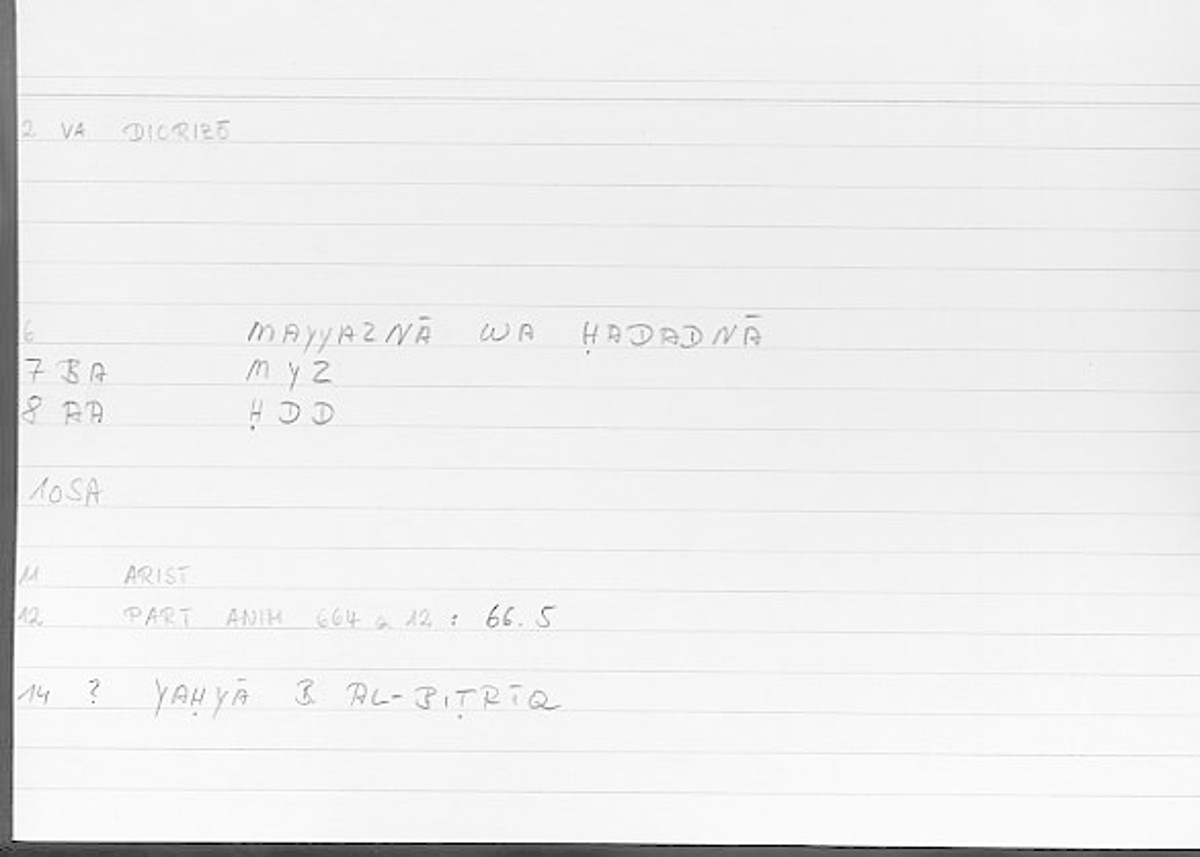 2 VA DIORIZŌ
6 MAYYAZNĀ WA ḤADADNĀ
7 BA MYZ
8 AA ḤDD
10SA
11 ARIST
12 PART ANIM 664 a 12 : 66.5
14 ? YAḤYĀ B. AL-BIṬRĪQ